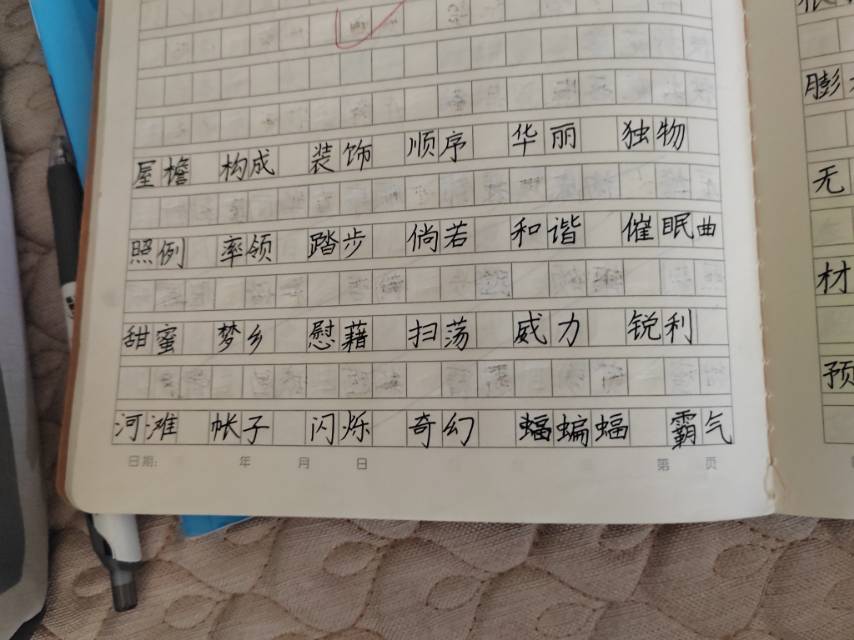 屋檐 构成 装饰 顺序 华丽 独物
照例 率领 踏步 倘若 和谐 催眠曲
甜蜜 梦乡 慰藉 扫荡 威力 锐利
河滩 帐子 闪烁 奇幻 蝠蝙蝠 霸气
日期: 年 月 日 第 页
膨
无
材
预